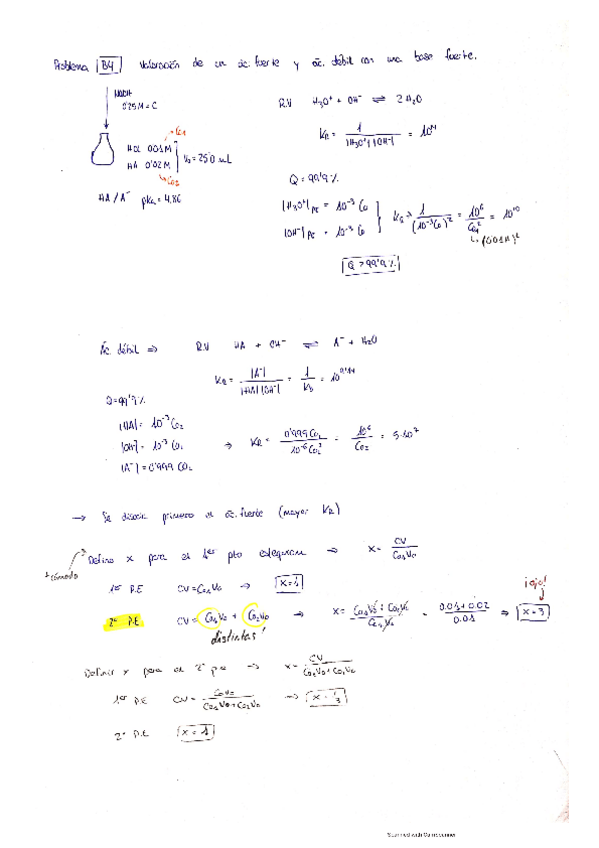 Problema B4 Valoración de un ác. fuerte y ác. débil con una base fuerte.
NaOH
0'25 M = C
HCl 0'01 M
Co1
HA 0'02 M
Co2
V0 = 250 mL
HA / A⁻ pKa = 4.86
R.V H3O⁺ + OH⁻ ⇌ 2 H2O
KR = 1 / |H3O⁺||OH⁻| = 10¹⁴
Q = 99'9 %
|H3O⁺|PE = 10⁻³ Co
|OH⁻|PE = 10⁻³ Co
KR > 1 / (10⁻³Co)² = 10⁶ / Co1² = 10¹⁰
(0'01 M)²
Q > 99'9 %
Ác. débil ⇒ R.V HA + OH⁻ ⇌ A⁻ + H2O
KR = |A⁻| / |HA||OH⁻| = 1 / Kb = 10
Q = 99'9 %
|HA| = 10⁻³ Co2
|OH⁻| = 10⁻³ Co2
|A⁻| = 0'999 Co2
⇒ KR = 0'999 Co2 / 10⁻⁶ Co2² = 10⁶ / Co2 = 5·10⁷
→ Se disocia primero el ác. fuerte (mayor KR)
+ cómodo
Define x para el 1er pto equivalen ⇒ x = CV / Co1V0
1er P.E CV = Co1V0 → x = 1
2º P.E CV = Co1V0 + Co2V0 → x = Co1V0 + Co2V0 / Co1V0 = 0.01 + 0.02 / 0.01 ⇒ x = 3
¡ojo!
distintas!
Definir x para el 2º pe → x = CV / Co1V0 + Co2V0
1er P.E CV = CoV0 / Co1V0 + Co2V0 → x = 1/3
2º P.E x = 1
Scanned with CamScanner